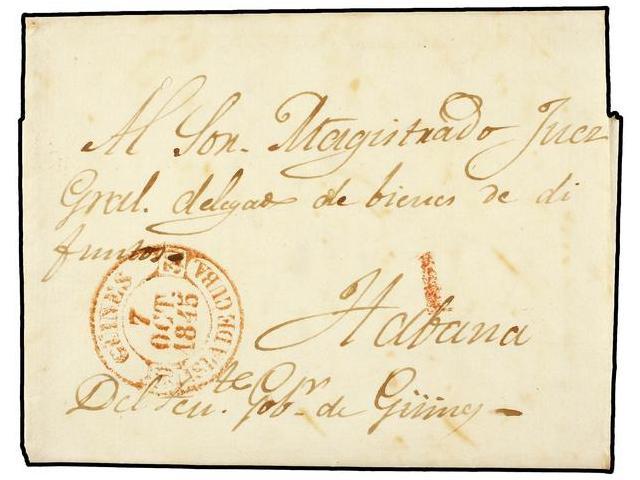 Al Sor. Magistrado Juez
Gral. delegado de bienes de di
funtos.
GUINES
7
OCT.
1845
ISLA DE CUBA
1
Habana
Del ten.te Gobr. de Güines